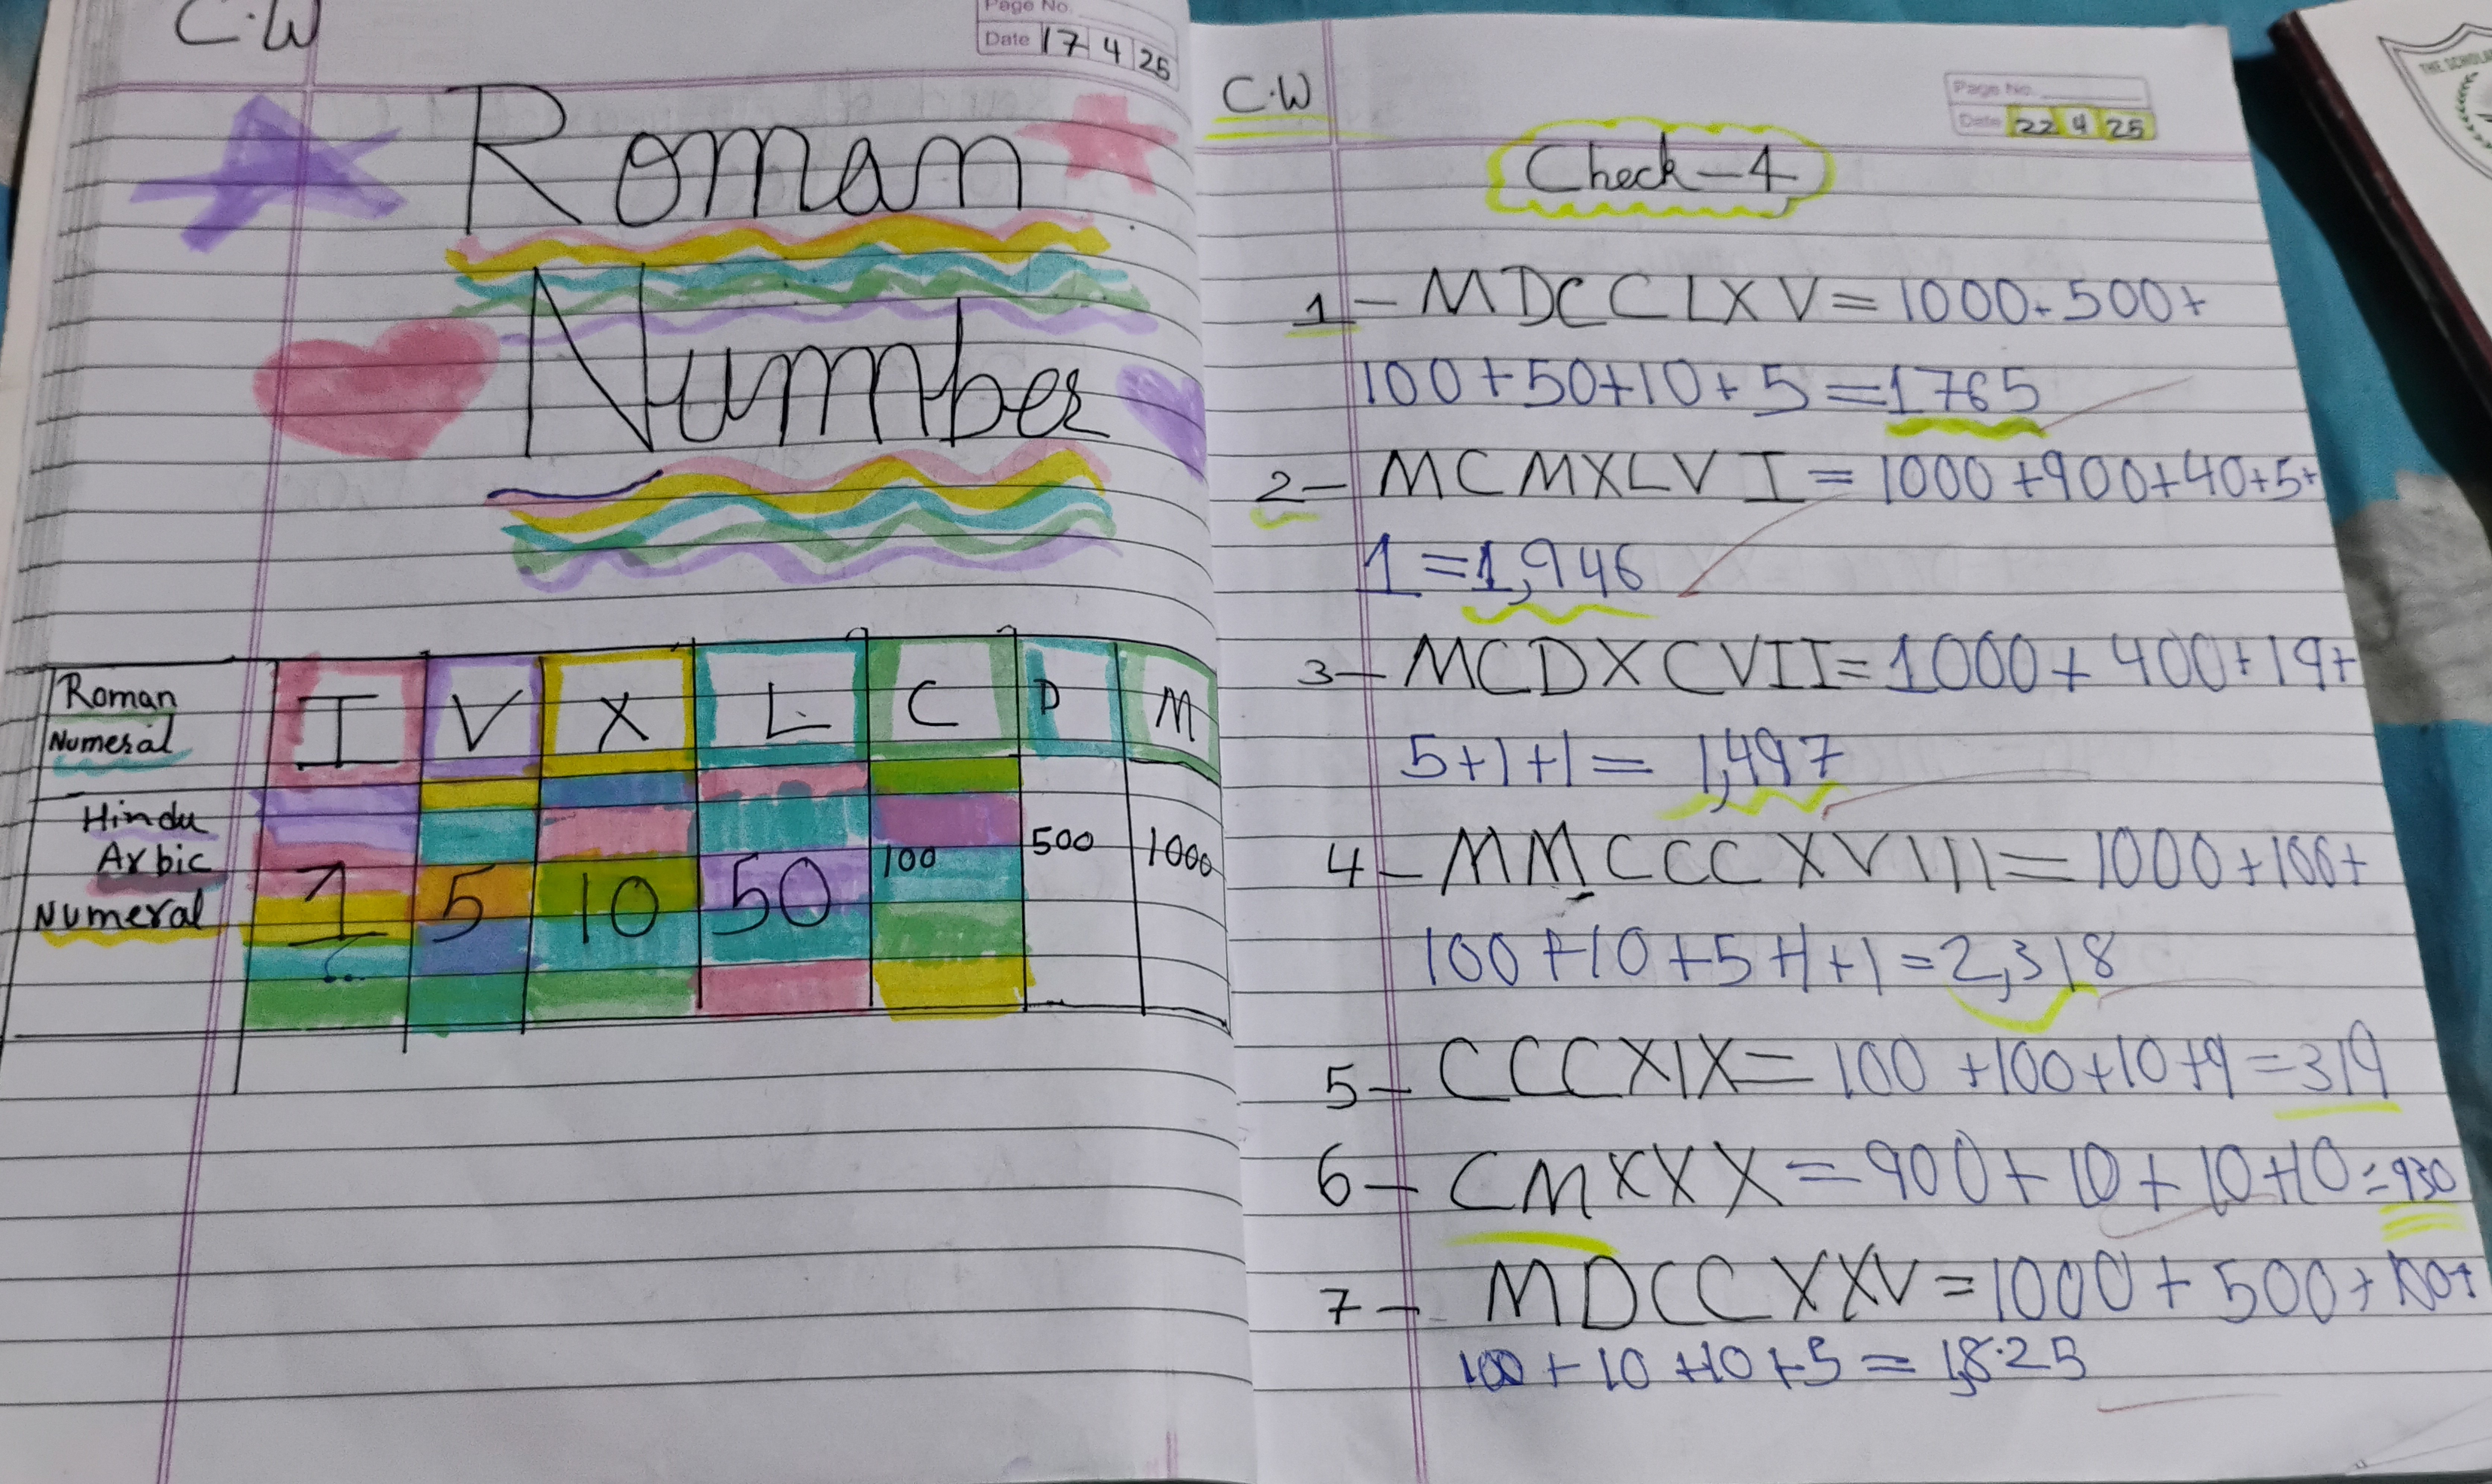 C.W
Page No.
Date 17 4 25
Roman
Number
Roman Numeral I V X L C D M
Hindu Arbic Numeral 1 5 10 50 100 500 1000
C.W
Page No.
Date 22 4 25
Check-4
1- MDCCLXV = 1000+500+
100+50+10+5 = 1765
2- MCMXLVI = 1000+900+40+5+
1 = 1,946
3- MCDXCVII = 1000+400+19+
5+1+1 = 1,497
4- MMCCCXVIII = 1000+100+
100+10+5+1+1 = 2,318
5- CCCXIX = 100+100+10+9 = 319
6- CMXXX = 900+10+10+10 = 930
7- MDCCXXV = 1000+500+100+
100+10+10+5 = 1,825